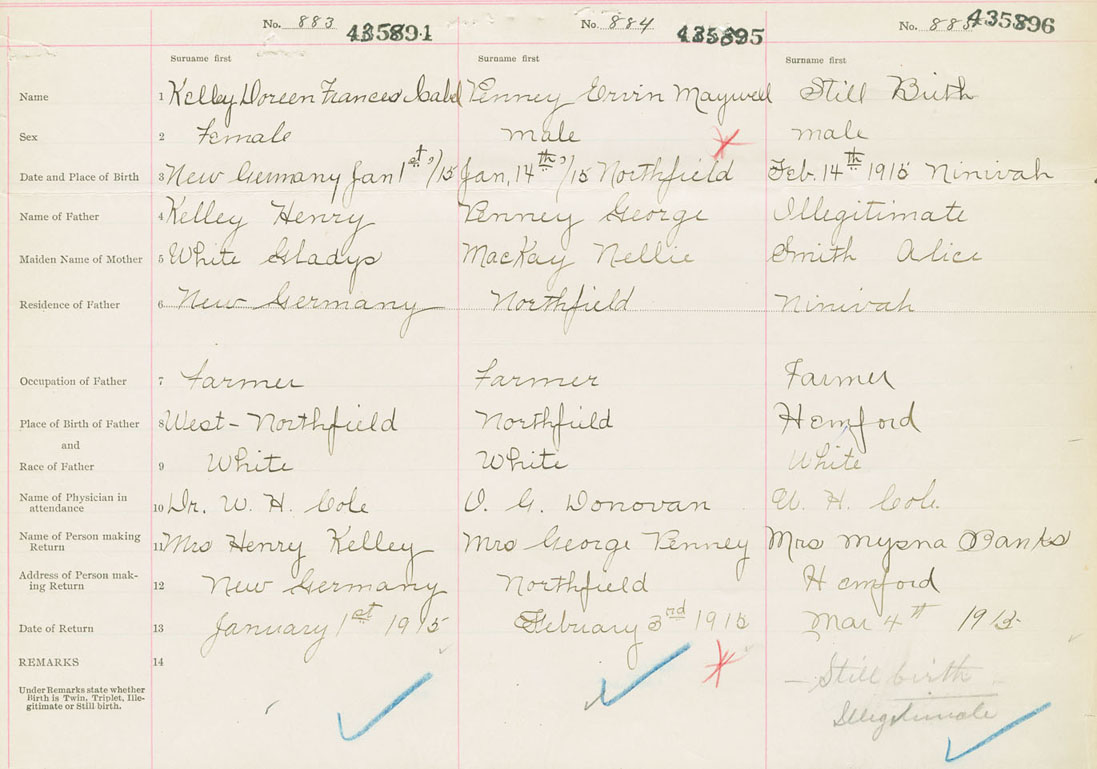 No. 883 435894 No. 884 435895 No. 885 435896
Surname first Surname first Surname first
Name 1 Kelley Doreen Frances Isabel Penney Ervin Maxwell Still Birth
Sex 2 Female male male
Date and Place of Birth 3 New Germany Jan 1st, /15 Jan, 14th, /15 Northfield Feb. 14th 1915 Ninivah
Name of Father 4 Kelley Henry Penney George Illegitimate
Maiden Name of Mother 5 White Gladys MacKay Nellie Smith Alice
Residence of Father 6 New Germany Northfield Ninivah
Occupation of Father 7 Farmer Farmer Farmer
Place of Birth of Father 8 West-Northfield Northfield Hemford
and
Race of Father 9 White White White
Name of Physician in
attendance 10 Dr. W. H. Cole O. G. Donovan W. H. Cole.
Name of Person making
Return 11 Mrs Henry Kelley Mrs George Penney Mrs Banks
Address of Person mak-
ing Return 12 New Germany Northfield Hemford
Date of Return 13 January 1st 1915 February 3rd 1915 Mar 4th 1915
REMARKS 14 - Still birth -
Under Remarks state whether
Birth is Twin, Triplet, Ille-
gitimate or Still birth.
Illegitimate